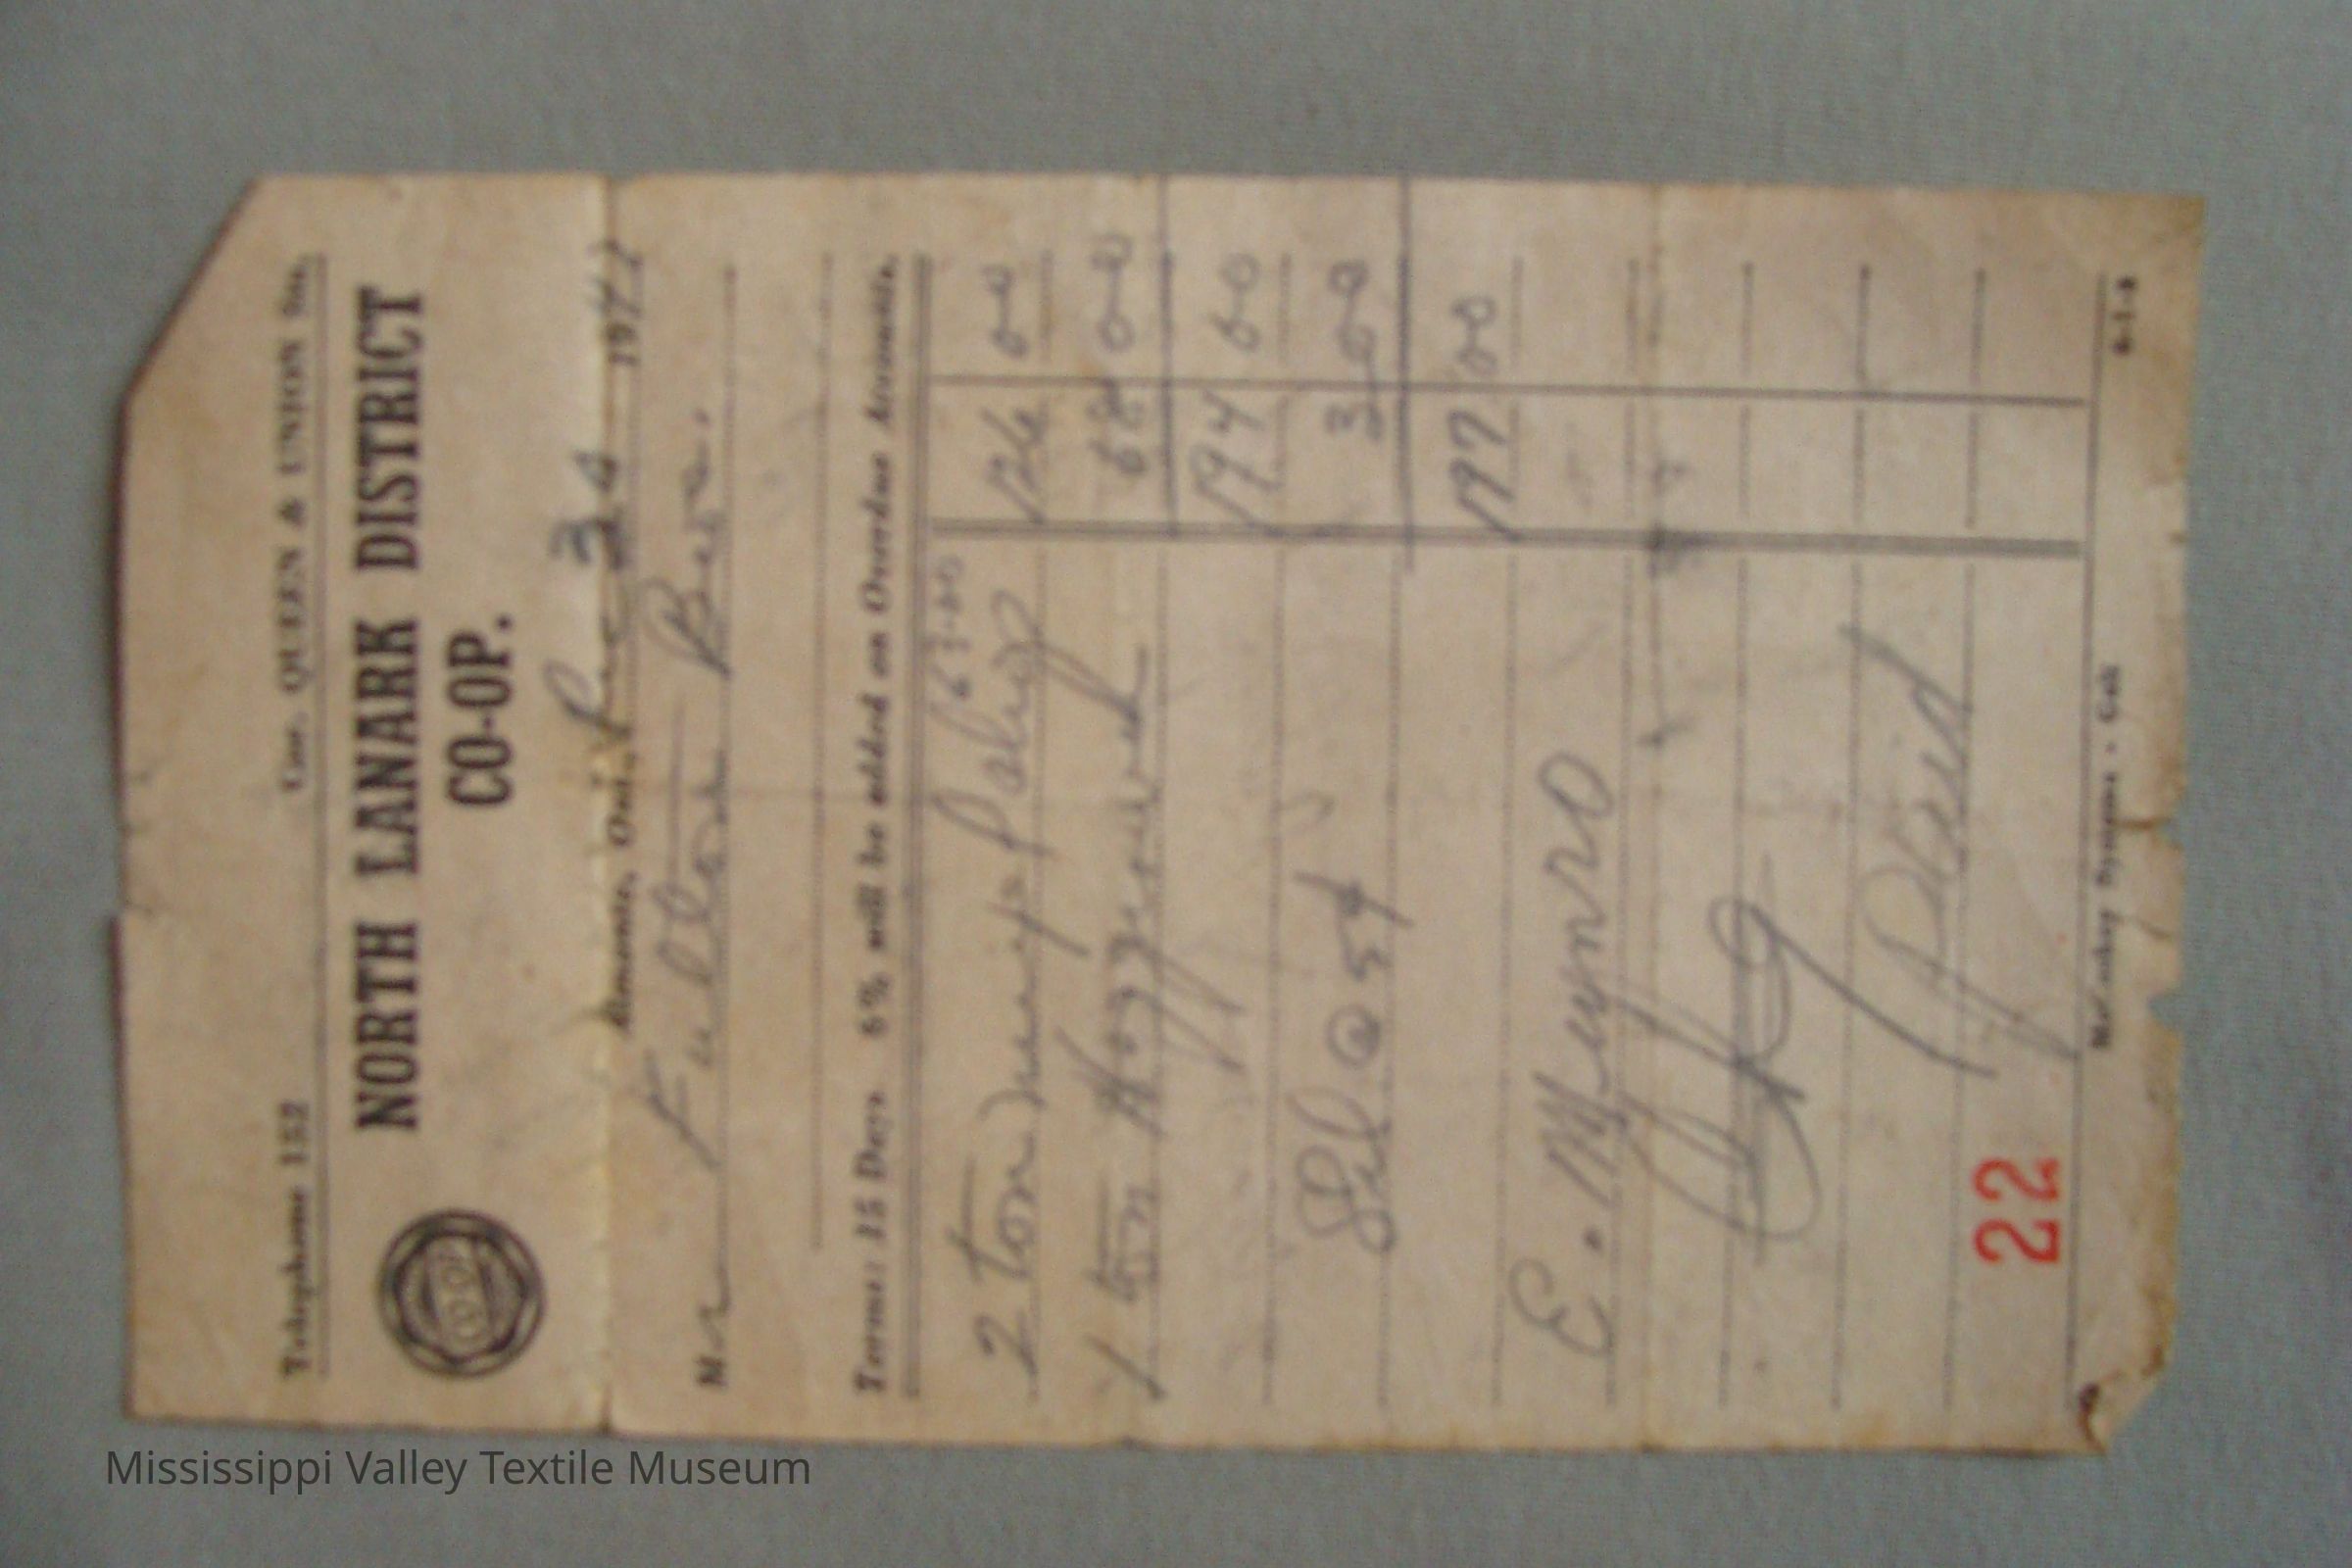 Telephone 152 Cor. QUEEN & UNION Sts.
CO-OP
NORTH LANARK DISTRICT
CO-OP.
Almonte, Ont., 30 19
Mr Fulton Bros.
Terms: 15 Days. 6% will be added on Overdue Accounts.
63.00
2 ton 126 00
1 ton Hoggrower 68 00
194 00
@ 5¢ 3 00
197 00
E. Munro
Paid
22
McCaskey Systems • Galt 6-1-8
Mississippi Valley Textile Museum